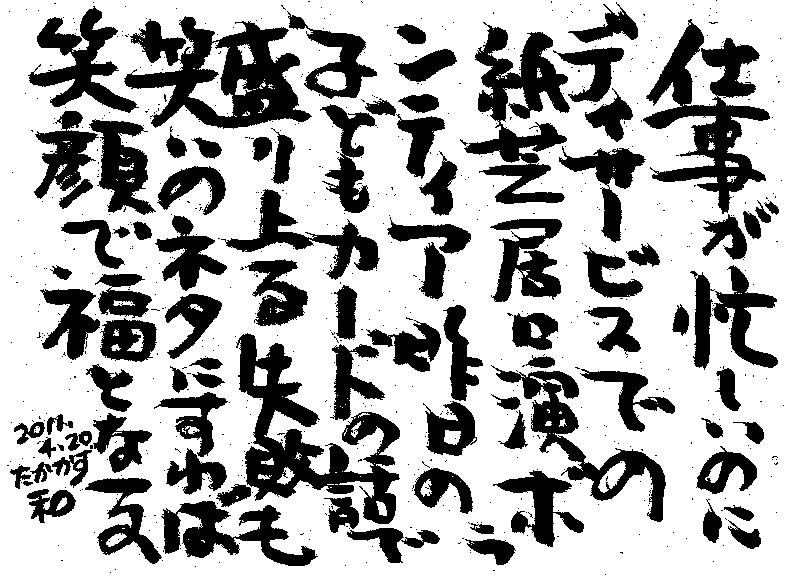 仕事が忙しいのに
ディサービスでの
紙芝居口演ボラ
ンティア昨日の
子どもカードの話で
盛り上る失敗も
笑いのネタにすれば
笑顔で福となる
2011.
4.20
たかかず
和